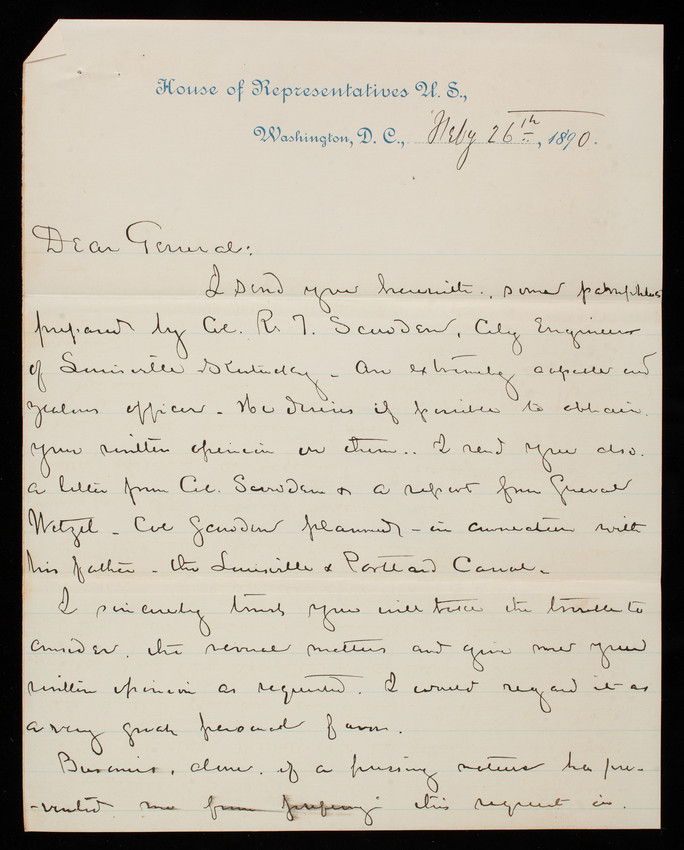 House of Representatives U.S.,
Washington, D.C., Feby 26th, 1890.
Dear General:
I send you herewith, some pamphlets
prepared by Col. R. T. Scowden, City Engineer
of Louisville Kentucky - an extremely capable and
zealous officer - He desires if possible to obtain
your written opinion on them.. I send you also.
a letter from Col. Scowden & a report from General
Weitzel - Col Scowden planned - in connection with
his father - the Louisville & Portland Canal -
I sincerely trust you will take the trouble to
consider, the several matters and give me your
written opinion as requested. I would regard it as
a very great personal favor.
Business, alone, of a pressing nature has pre-
-vented me from this request in.